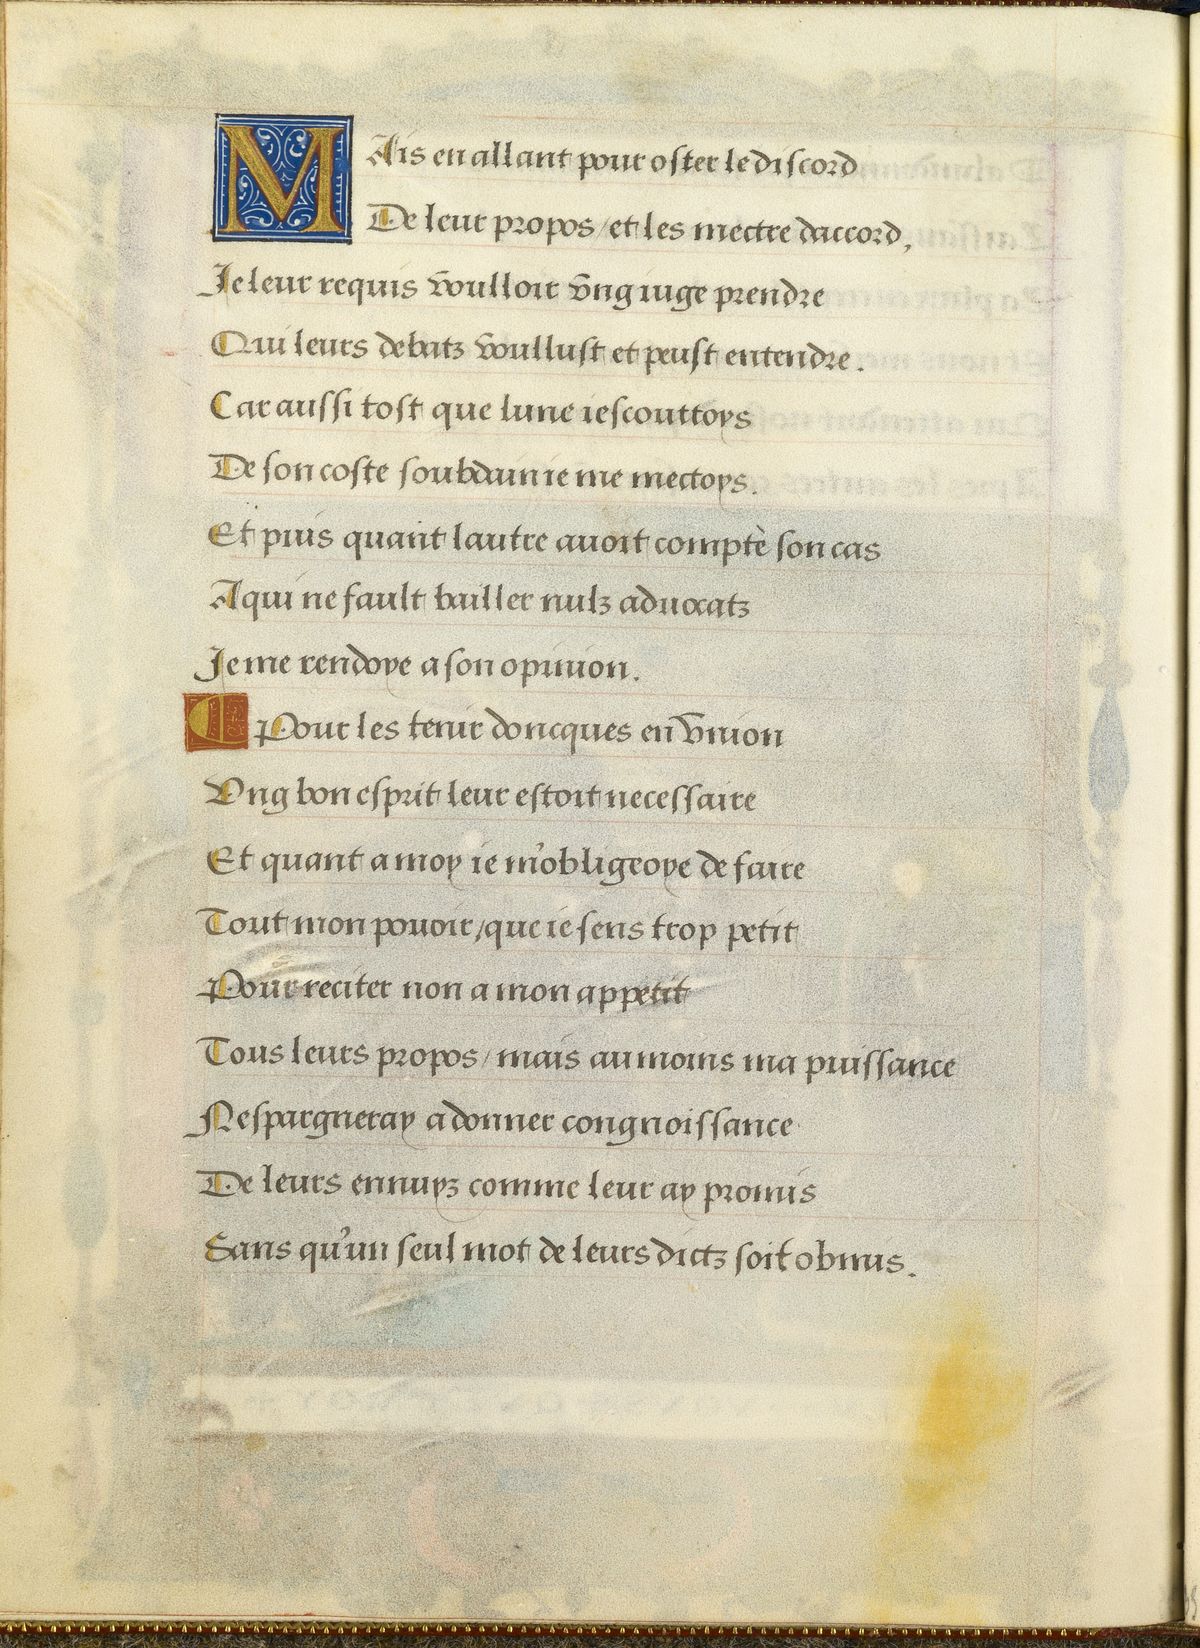 MAis en allant pour oster le discord
De leur propos / et les mectre daccord,
Je leur requis voulloir vng iuge prendre
Qui leurs debatz voullust et peust entendre.
Car aussi tost que lune iescouttoys
De son coste soubdain ie me mectoys.
Et puis quant lautre auoit comptè son cas
A qui ne fault bailler nulz aduocatz
Je me rendoye a son opinion.
Pour les tenir doncques en vnion
Vng bon esprit leur estoit necessaire
Et quant a moy ie m'obligeoye de faire
Tout mon pouoir / que ie sens trop petit
Pour reciter non a mon appetit
Tous leurs propos / mais au moins ma puissance
Nespargneray a donner congnoissance
De leurs ennuyz comme leur ay promis
Sans qu'un seul mot de leurs dictz soit obmis.